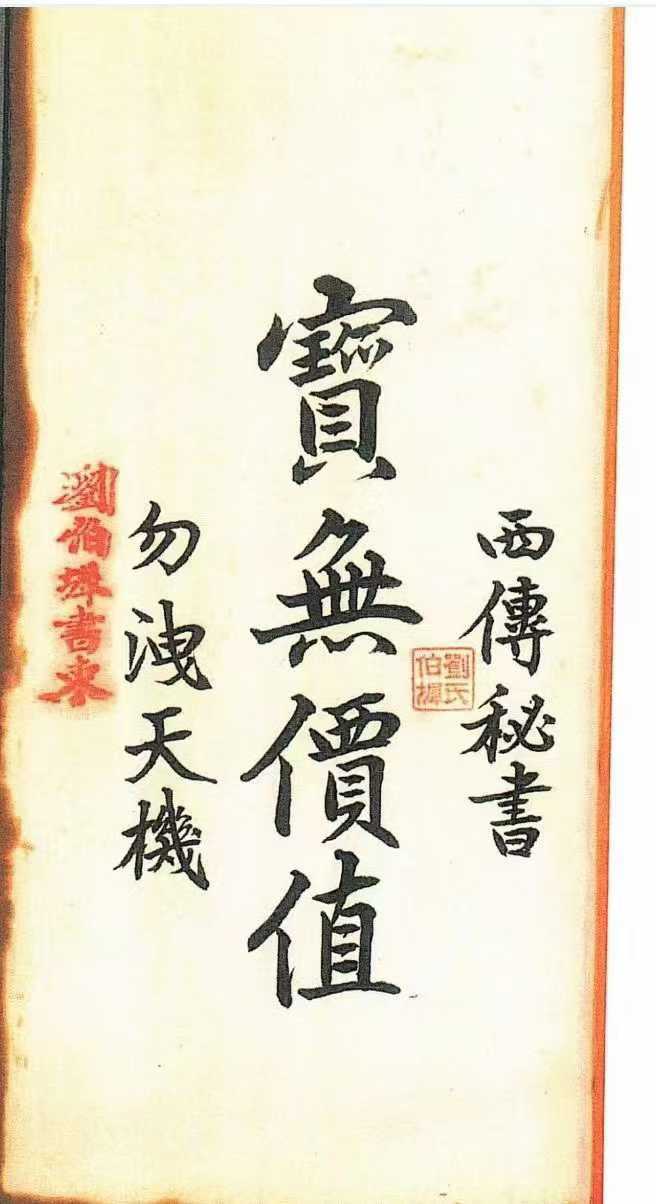 西傳秘書
劉氏
伯
寶無價值
勿洩天機
劉伯書柬